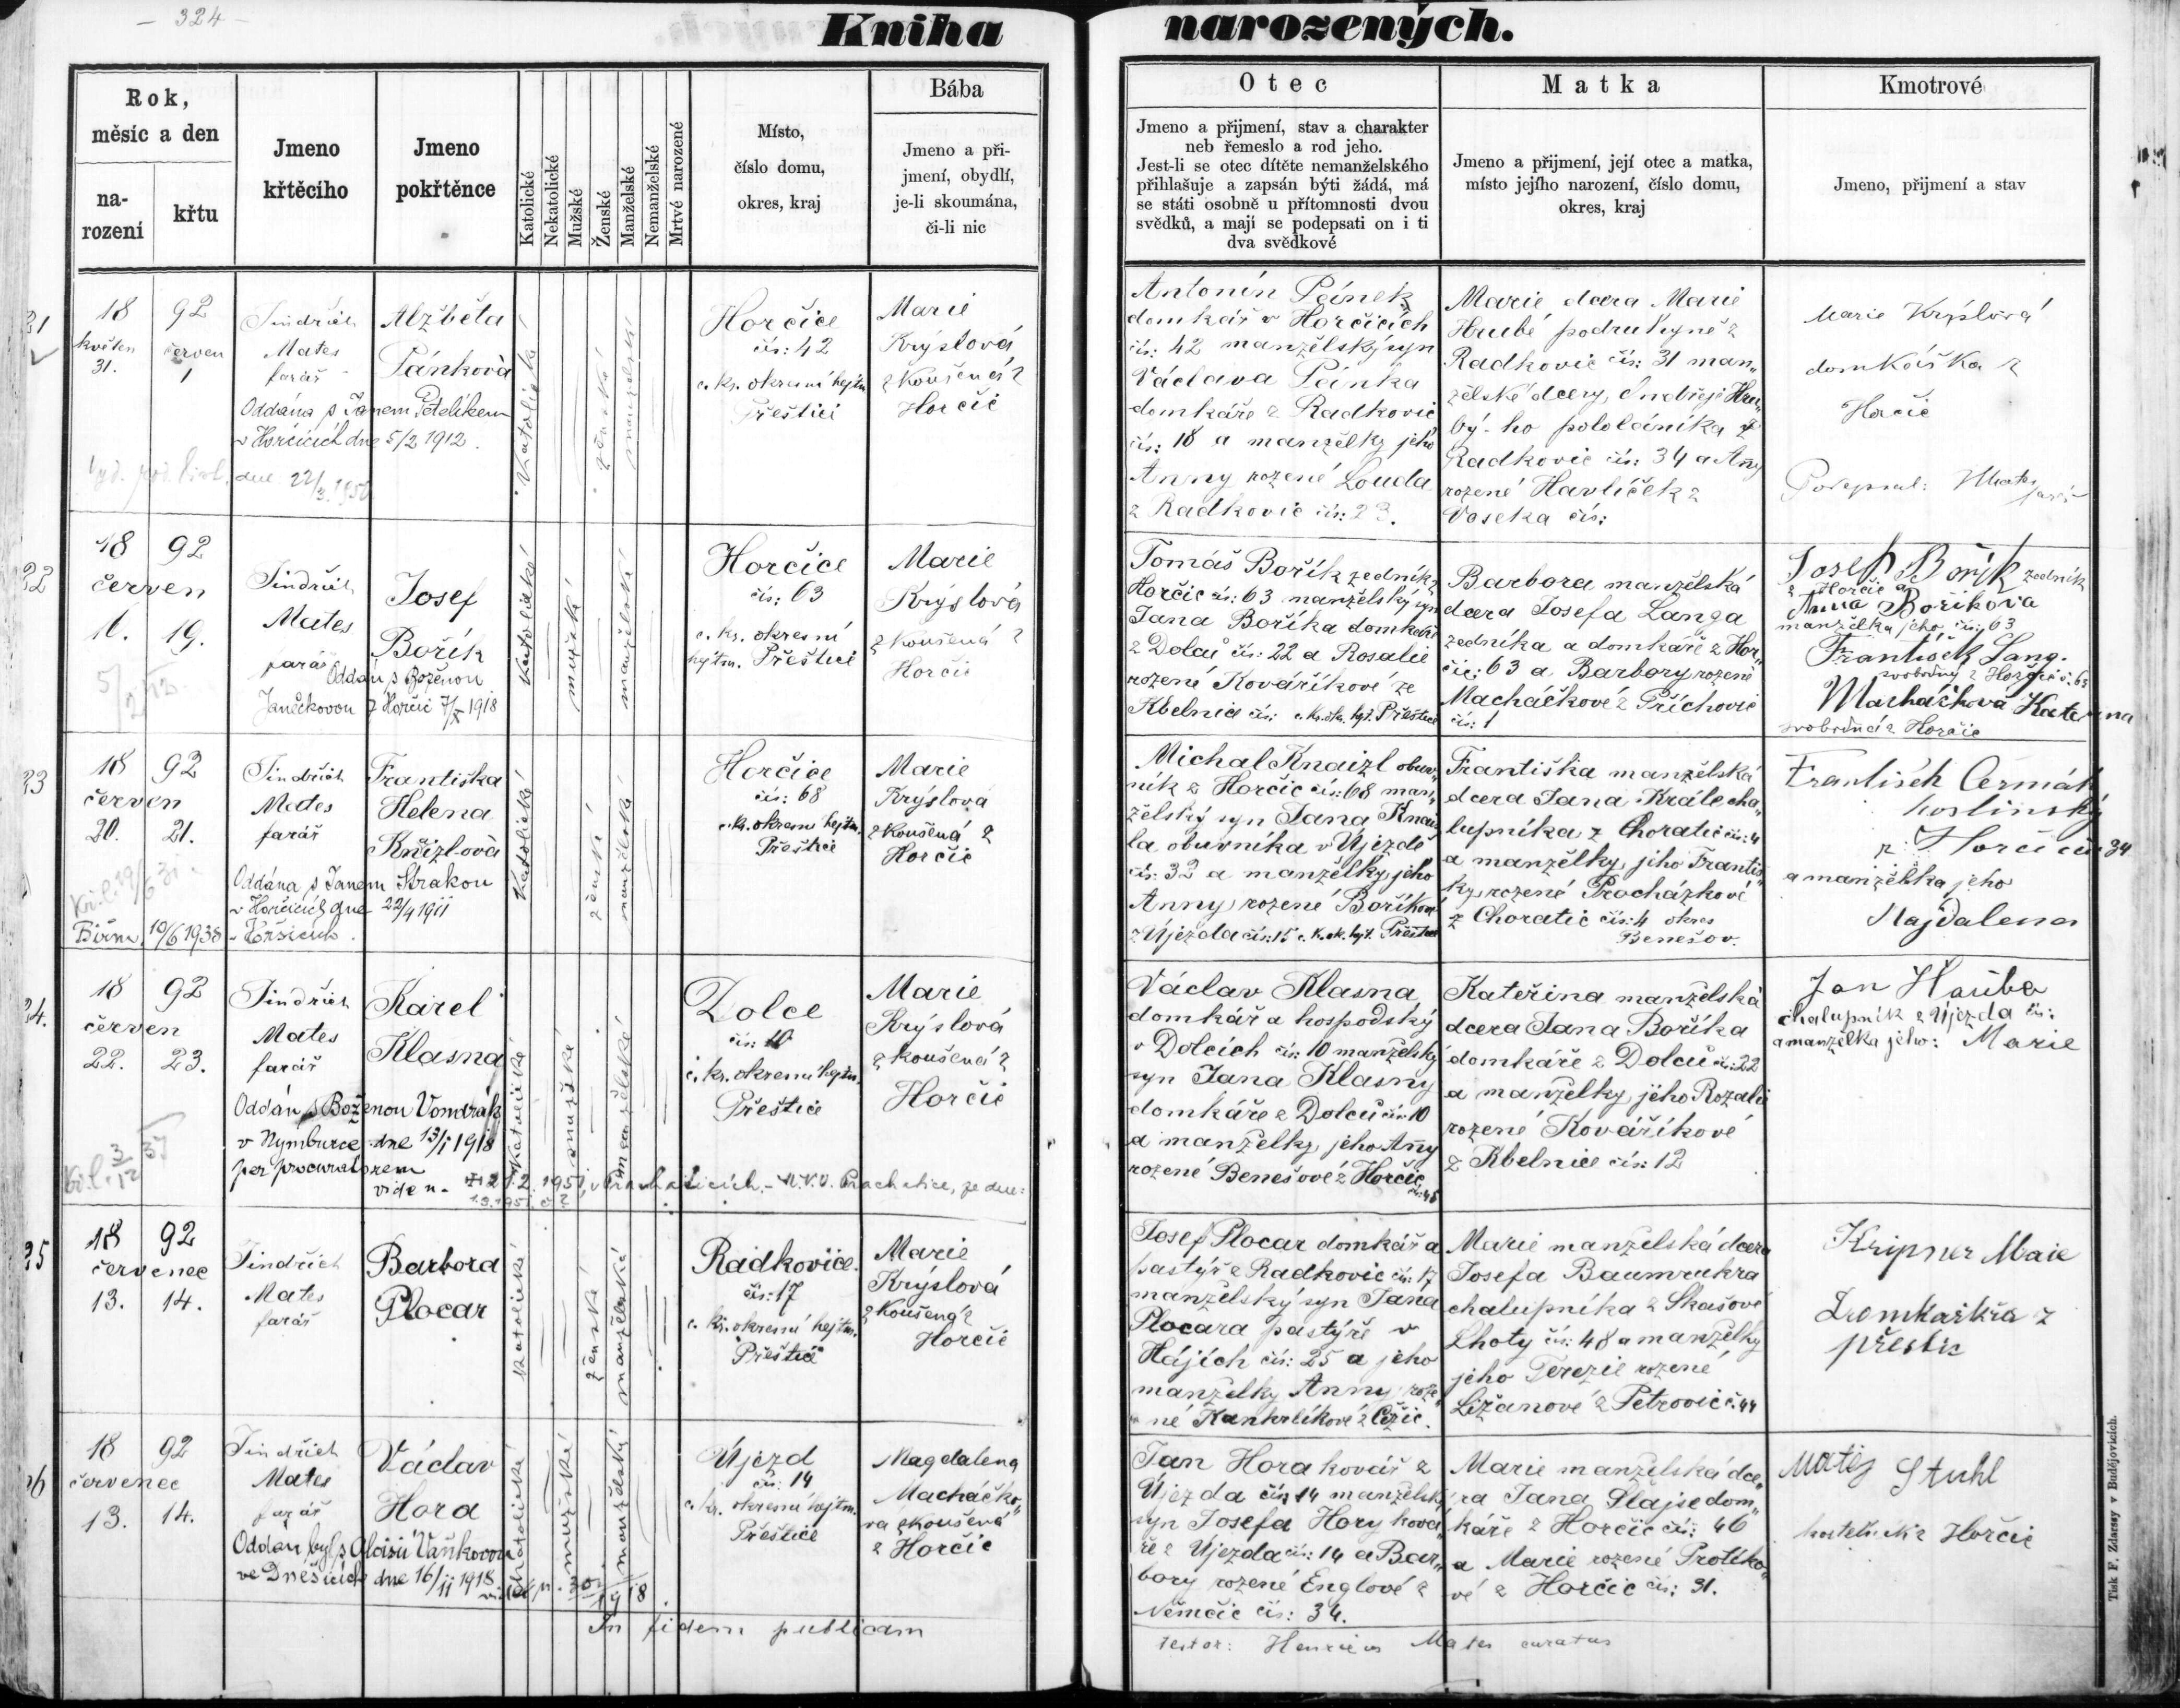 - 324 -
Kniha narozených.
Rok, měsíc a den
narození
křtu
Jmeno křtěcího
Jmeno pokřtěnce
Katolické
Nekatolické
Mužské
Ženské
Manželské
Nemanželské
Mrtvé narozené
Místo,
číslo domu,
okres, kraj
Bába
Jmeno a při-
jmení, obydlí,
je-li skoumána,
či-li nic
Otec
Jmeno a přijmení, stav a charakter
neb řemeslo a rod jeho.
Jest-li se otec dítěte nemanželského
přihlašuje a zapsán býti žádá, má
se státi osobně u přítomnosti dvou
svědků, a mají se podepsati on i ti
dva svědkové
Matka
Jmeno a přijmení, její otec a matka,
místo jejího narození, číslo domu,
okres, kraj
Kmotrové
Jmeno, přijmení a stav
21
18 92
květen červen
31. 1
Jindřich
Mates
farář
Alžběta
Pánková
Oddána s Janem Petelíkem
v Horčicích dne 5/2 1912.
dne 22/3 1950
katolické
ženské
manželské
Horčice
čís: 42
c. kr. okresní hejtm.
Přeštici
Marie
Krýslová
zkoušená z
Horčic
Antonín Pánek
domkář v Horčicích
čís: 42 manželský syn
Václava Pánka
domkáře z Radkovic
čís: 18 a manželky jeho
Anny rozené Louda
z Radkovic čís: 23.
Marie dcera Marie
Hrubé podruhyně z
Radkovic čís: 31 man„
želské dcery, Ondřeje Hru„
bý-ho pololáníka z
Radkovic čís: 34 a Anny
rozené Havlíček z
Voseka čís:
Marie Krýslová
domkářka z
Horčic
Podepsal: Mates farář
22
18 92
červen
16. 19.
Jindřich
Mates
farář
Josef
Bořík
Oddán s Boženou
Janečkovou z Horčic 7/X 1918
katolické
mužské
manželské
Horčice
čís: 63
c. kr. okresní
hejtm. Přeštice
Marie
Krýslová
zkoušená z
Horčic
Tomáš Bořík zedník z
Horčic čís: 63 manželský syn
Jana Boříka domkáře
z Dolců čís: 22 a Rosalie
rozené Kovaříkové ze
Kbelnice čís: c. kr. okr. hejt. Přeštice
Barbora manželská
dcera Josefa Langa
zedníka a domkáře z Hor„
čic: 63 a Barbory rozené
Macháčkové z Příchovic
čís: 1
Josef Bořík zedník
z Horčic a
Anna Boříkova
manželka jeho čís: 63
František Lang.
svobodný z Horčic č. 63
Macháčková Kateřina
svobodná z Horčic
23
18 92
červen
20. 21.
Jindřich
Mates
farář
Františka
Helena
Knaizlová
Oddána s Janem Strakou
v Horčicích dne 22/4 1911
10/6 1938
katolické
ženské
manželské
Horčice
čís: 68
c. kr. okresní hejtm.
Přeštice
Marie
Krýslová
zkoušená z
Horčic
Michal Knaizl obuv„
ník z Horčic čís: 68 man„
želský syn Jana Knaiz
la obuvníka v Újezdě
čís: 32 a manželky jeho
Anny rozené Boříkové
z Újezda čís: 15 c. k. ok. hejt. Přeštice
Františka manželská
dcera Jana Krále cha„
lupníka z Choratic čís: 4
a manželky jeho Františ„
ky rozené Procházkové
z Choratic čís: 4 okres
Benešov.
František Čermák
hostinský
z Horčic čís 34
a manželka jeho
Majdalena
24.
18 92
červen
22. 23.
Jindřich
Mates
farář
Karel
Klasna
Oddán s Boženou Vondrák
v Nymburce dne 13/1 1918
per procuratorem
katolické
mužské
manželské
Dolce
čís: 10
c. kr. okresní hejtm.
Přeštice
Marie
Krýslová
zkoušená z
Horčic
Václav Klasna
domkář a hospodský
v Dolcích čís: 10 manželský
syn Jana Klasny
domkáře z Dolců čís 10
a manželky jeho Anny
rozené Benešové z Horčic
čís: 45
Kateřina manželská
dcera Jana Boříka
domkáře z Dolců čís: 22
a manželky jeho Rozalie
rozené Kovaříkové
z Kbelnice čís: 12
Jan Houba
chalupník z Újezda čís:
a manželka jeho: Marie
25
18 92
červenec
13. 14.
Jindřich
Mates
farář
Barbora
Plocar
katolické
ženské
manželské
Radkovice.
čís: 17
c. kr. okresní hejtm.
Přeštice
Marie
Krýslová
zkoušená z
Horčic
Josef Plocar domkář a
pastýř z Radkovic čís: 17
manželský syn Jana
Plocara pastýře v
Hájích čís: 25 a jeho
manželky Anny roze
né
Marie manželská dcera
Josefa Baumrukra
chalupníka z Skašové
Lhoty čís: 48 a manželky
jeho Terezie rozené
Ližanové z Petrovic č. 44
Kripner Maie
Domkařka z
přeštic
26
18 92
červenec
13. 14.
Jindřich
Mates
farář
Václav
Hora
Oddán byl s Aloisií Vaňkovou
ve Dnešicích dne 16/11 1918
katolické
mužské
manželský
Újezd
čís: 14
c. kr. okresní hejtm.
Přeštice
Magdalena
Macháčko„
va zkoušená
z Horčic
Jan Hora kovář z
Újezda čís 14 manželský
syn Josefa Hory ková„
ře z Újezda čís: 14 a Bar„
bory rozené Englové z
Němčic čís: 34.
Marie manželská dce„
ra Jana Plajse dom„
káře z Horčic čís: 46
a Marie rozené Protiko„
vé z Horčic čís: 31.
Matěj Stuhl
z Horčic
In fidem publicam
testor: Henricus Mates curatus
Tisk F. Zdarssy v Budějovicích.